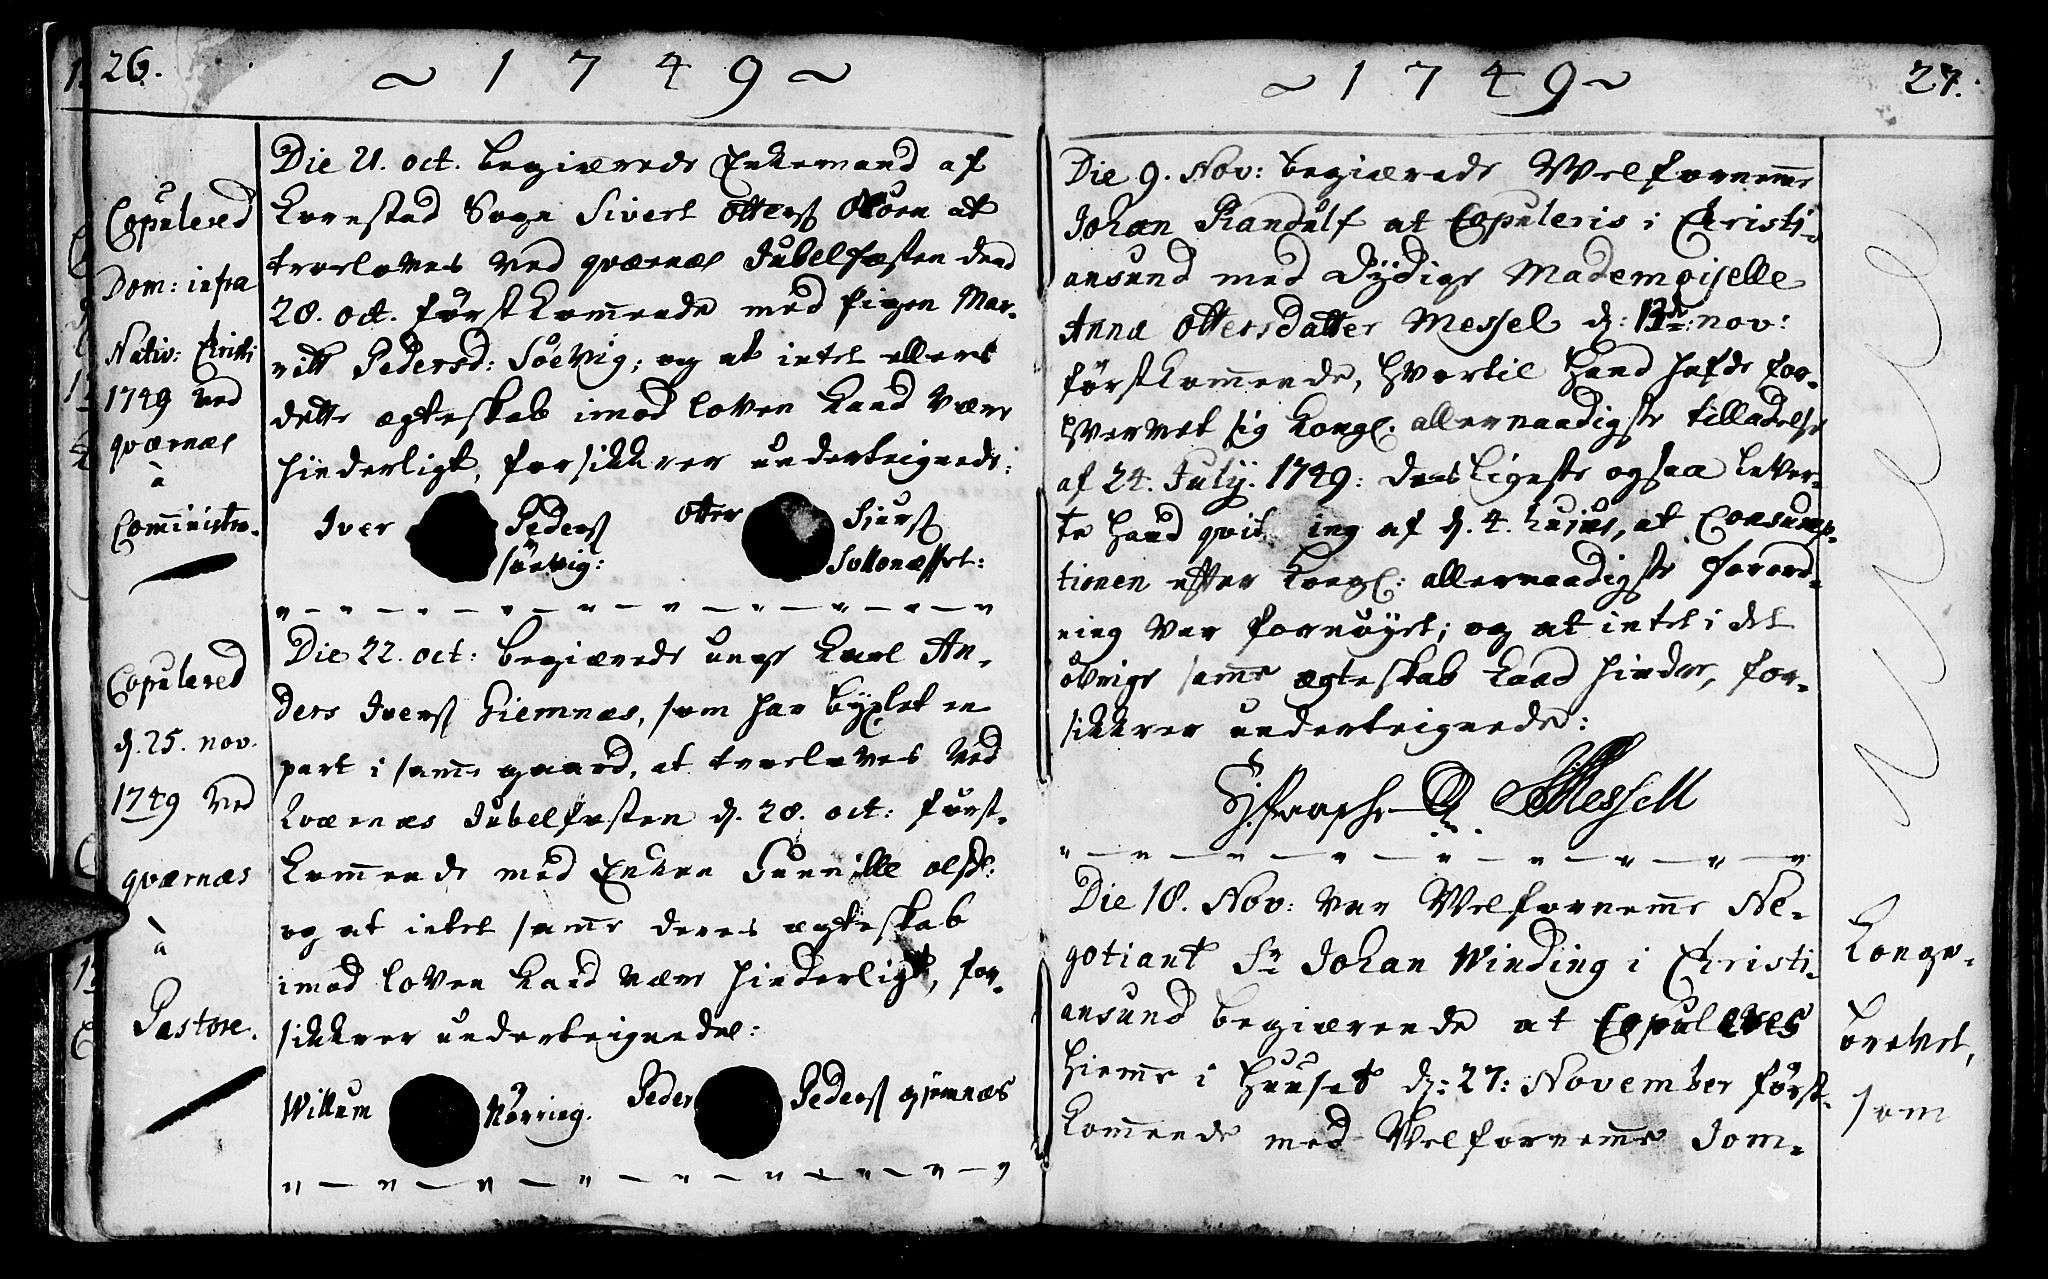 26.
~ 1 7 4 9 ~
Copulered
Dom: infra
Nativ: Christi
1749 ved
qværnæs
à
Com̄inistro.
Die 21. oct. begiærede Enkemand af
Kornstad Sogn Sivert Otters
at
troeloves ved qværnæs Jubelfæsten dend
28. oct. førstkom̄ende med Pigen Mar-
ritt Pedersd: Söevig; og at intet ellers
dette ægteskab imod loven kand være
hinderligt, forsikkrer undertegnede:
Iver Peders Otter Siurs
Sörvig:
Copulered
d. 25. nov.
1749 ved
qværnæs
à
Pastore.
Die 22. oct: begiærede unge Karl An-
ders Ivers Giemnæs, som har byxlet en
part i sam̄e gaard, at troeloves ved
Kværnæs Jubelfesten d. 28. oct: først-
kom̄ende med Enken Gunnille olsd:
og at intet sam̄e deres ægteskab
imod loven kand være hinderligt, for-
sikkrer undertegnedes:
Willum Nörring. Peder Peders gjemnæs
27.
~ 1 7 4 9 ~
Die 9. Nov: begiærede Welfornem̄e
Johan Randulf at Copuleris i Christi-
ansund med Dydige Mademoiselle
Anna Ottersdatter Messel d: 13de nov:
førstkom̄ende, hvortil hand hafde for-
hvervet sig Kongl. allernaadigste tilladelse
af 24. July. 1749: desligeste ogsaa lever-
te hand qvit ing af d. 4. hujus, at Consump-
tionen efter Kongl: allernaadigste forord-
ning var fornøyet; og at intet i det
øvrige sam̄e ægteskab kand hindre, for-
sikkrer undertegnede:
Messell
Die 18. Nov: var Welfornem̄e Ne-
gotiant Sr Johan Winding i Christi-
ansund begiærende at Copuleres
hiem̄e i Huuset d: 27: November først-
kom̄ende med Welfornem̄e Jom-
Konge-
brevet,
som